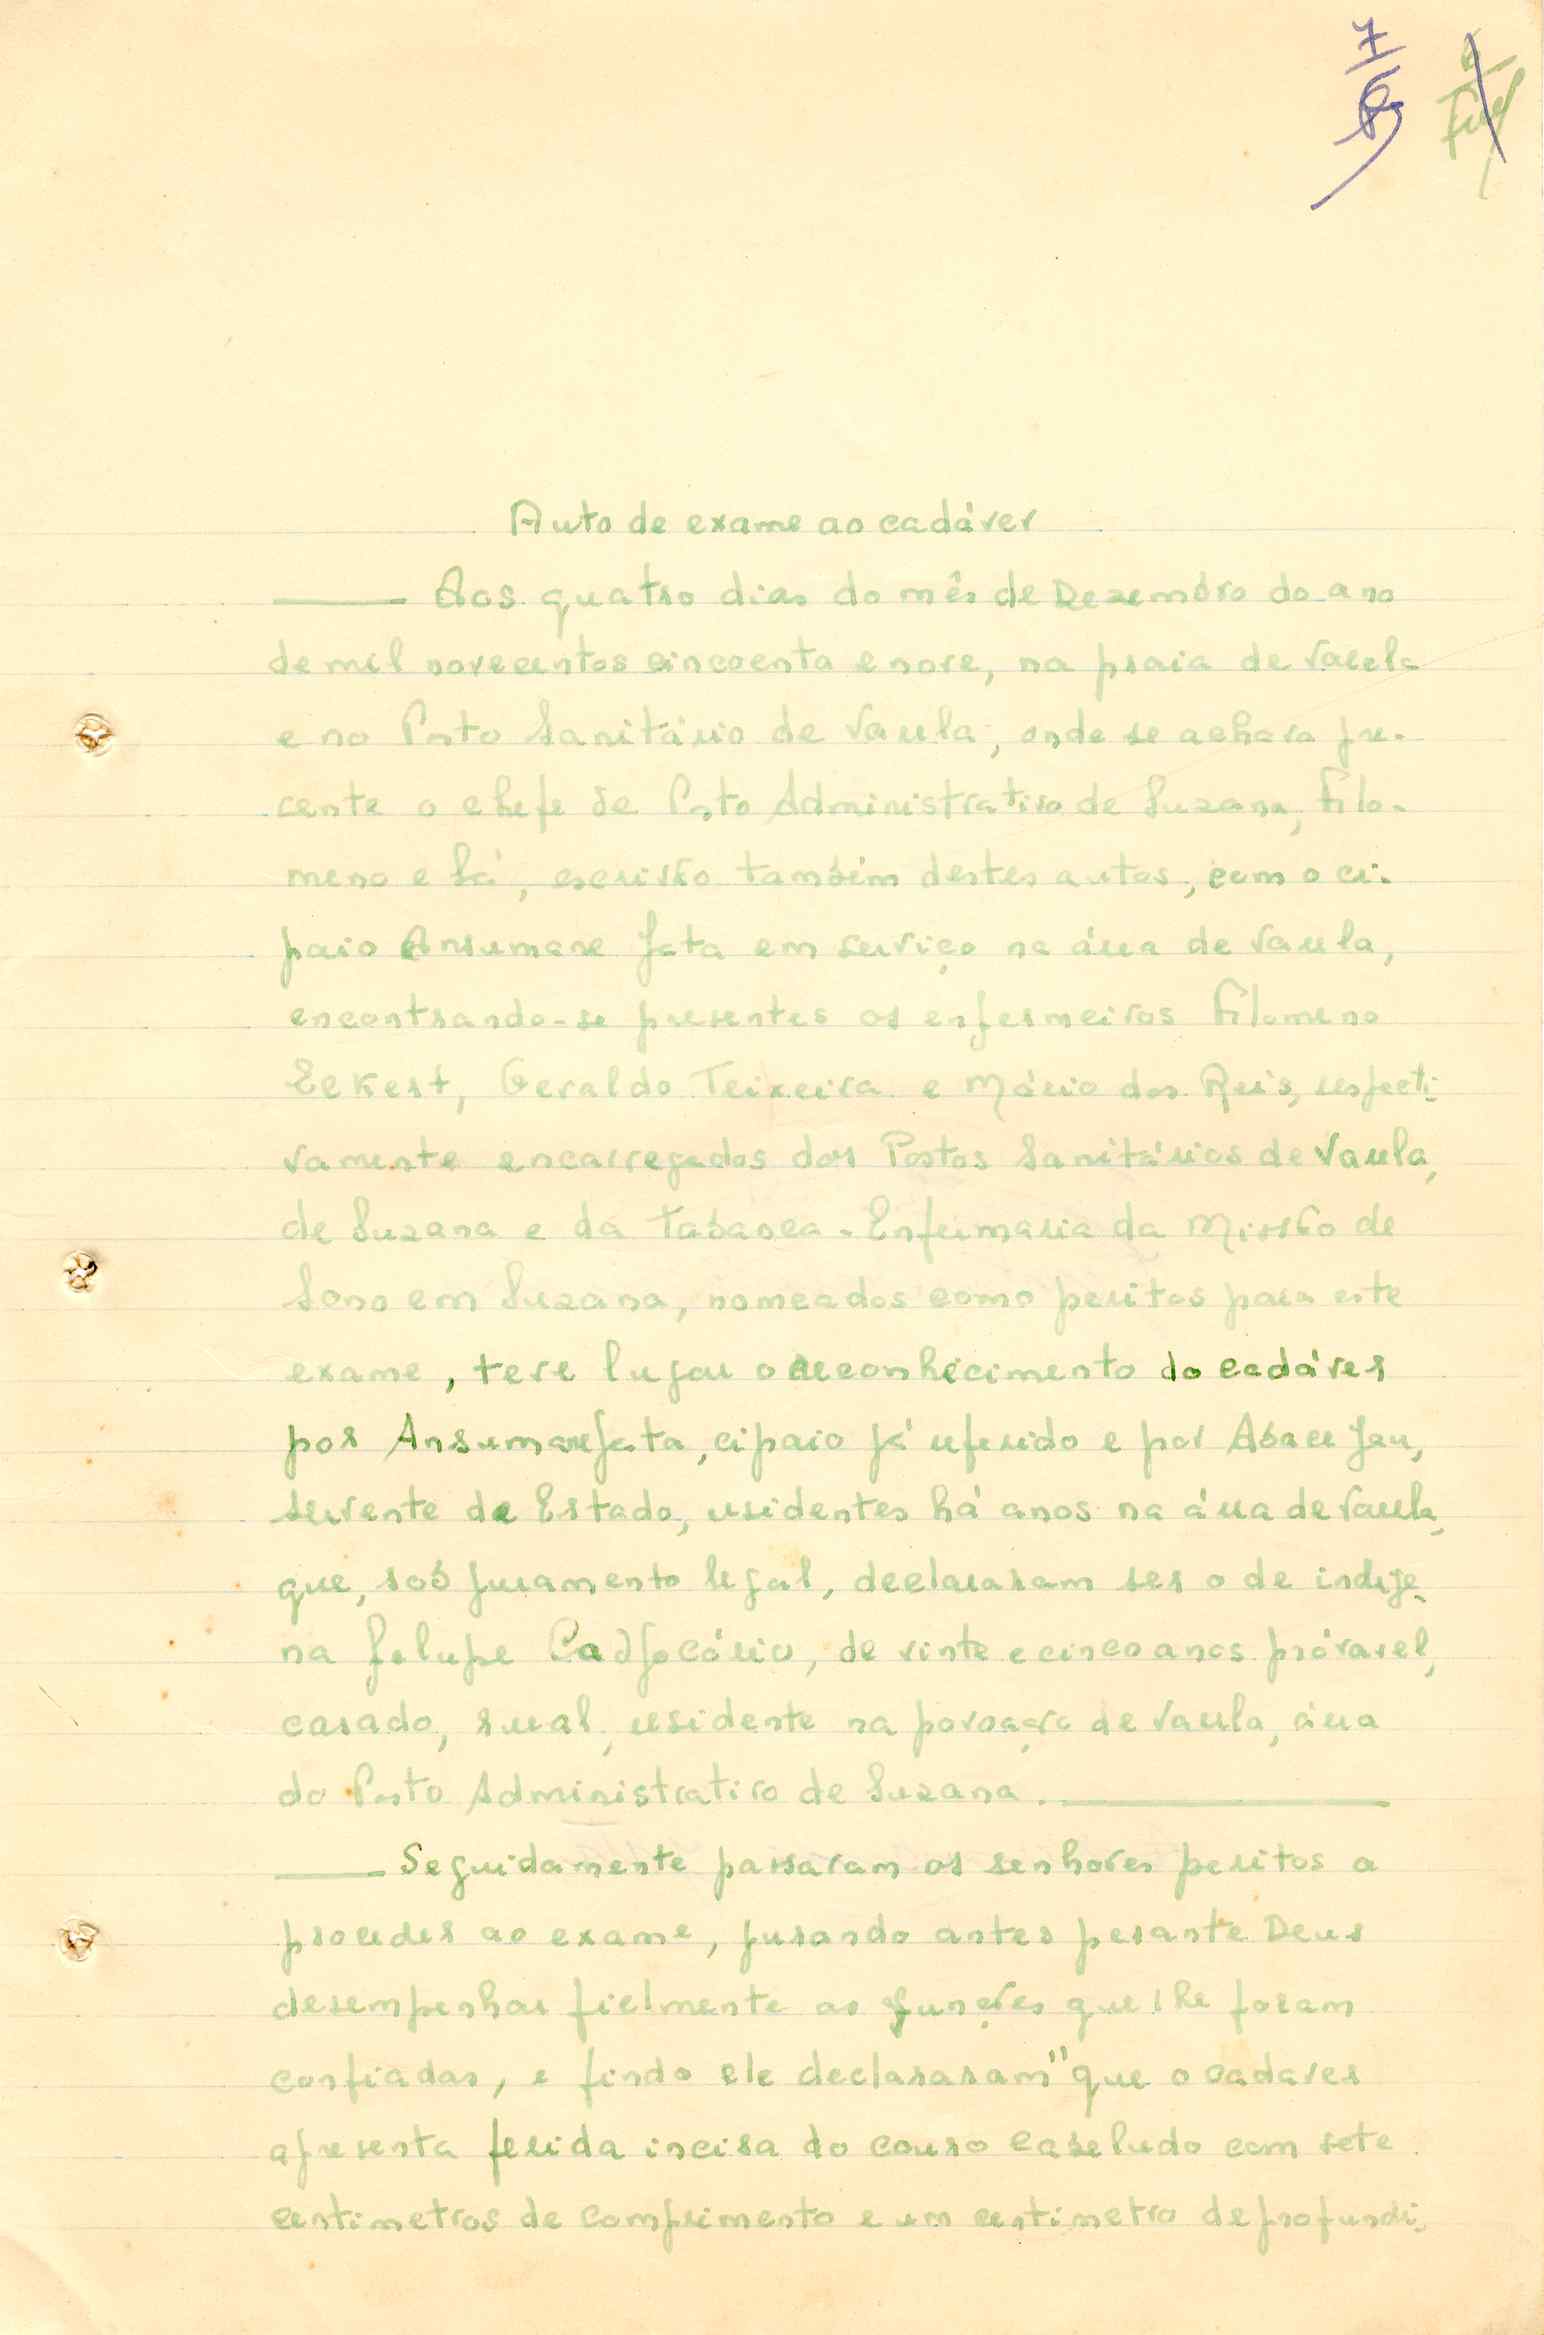 7
6
Auto de exame ao cadáver
Aos quatro dias do mês de Dezembro do ano
de mil novecentos cincoenta e nove, na praia de Varela
e no Posto Sanitário de Varela, onde se achava pre-
cente o chefe de Posto Administrativo de Suzana, Filo-
meno e Sá, escrivão também destes autos, com o ci-
paio Ansumane Jata em serviço na área de Varela,
encontrando-se presentes os enfermeiros Filomeno
Eckert, Geraldo Teixeira e Mário dos Reis, respecti-
vamente encarregados dos Postos Sanitários de Varela,
de Suzana e da Tabanca-Enfermaria da Missão de
Sono em Suzana, nomeados como peritos para este
exame, teve lugar o reconhecimento do cadáver
por Ansumane Jata, cipaio já referido e por
servente de Estado, residentes há anos na área de Varela,
que, sob juramento legal, declararam ser o de indige-
na felupe de vinte e cinco anos próvavel,
casado, rural, residente na povoação de Varela, área
do Posto Administrativo de Suzana.
Seguidamente passaram os senhores peritos a
proceder ao exame, jurando antes perante Deus
desempenhar fielmente as funções que lhe foram
confiadas, e findo ele declararam "que o cadaver
apresenta ferida incisa do couro cabeludo com sete
centimetros de comprimento e um centimetro de profundi-